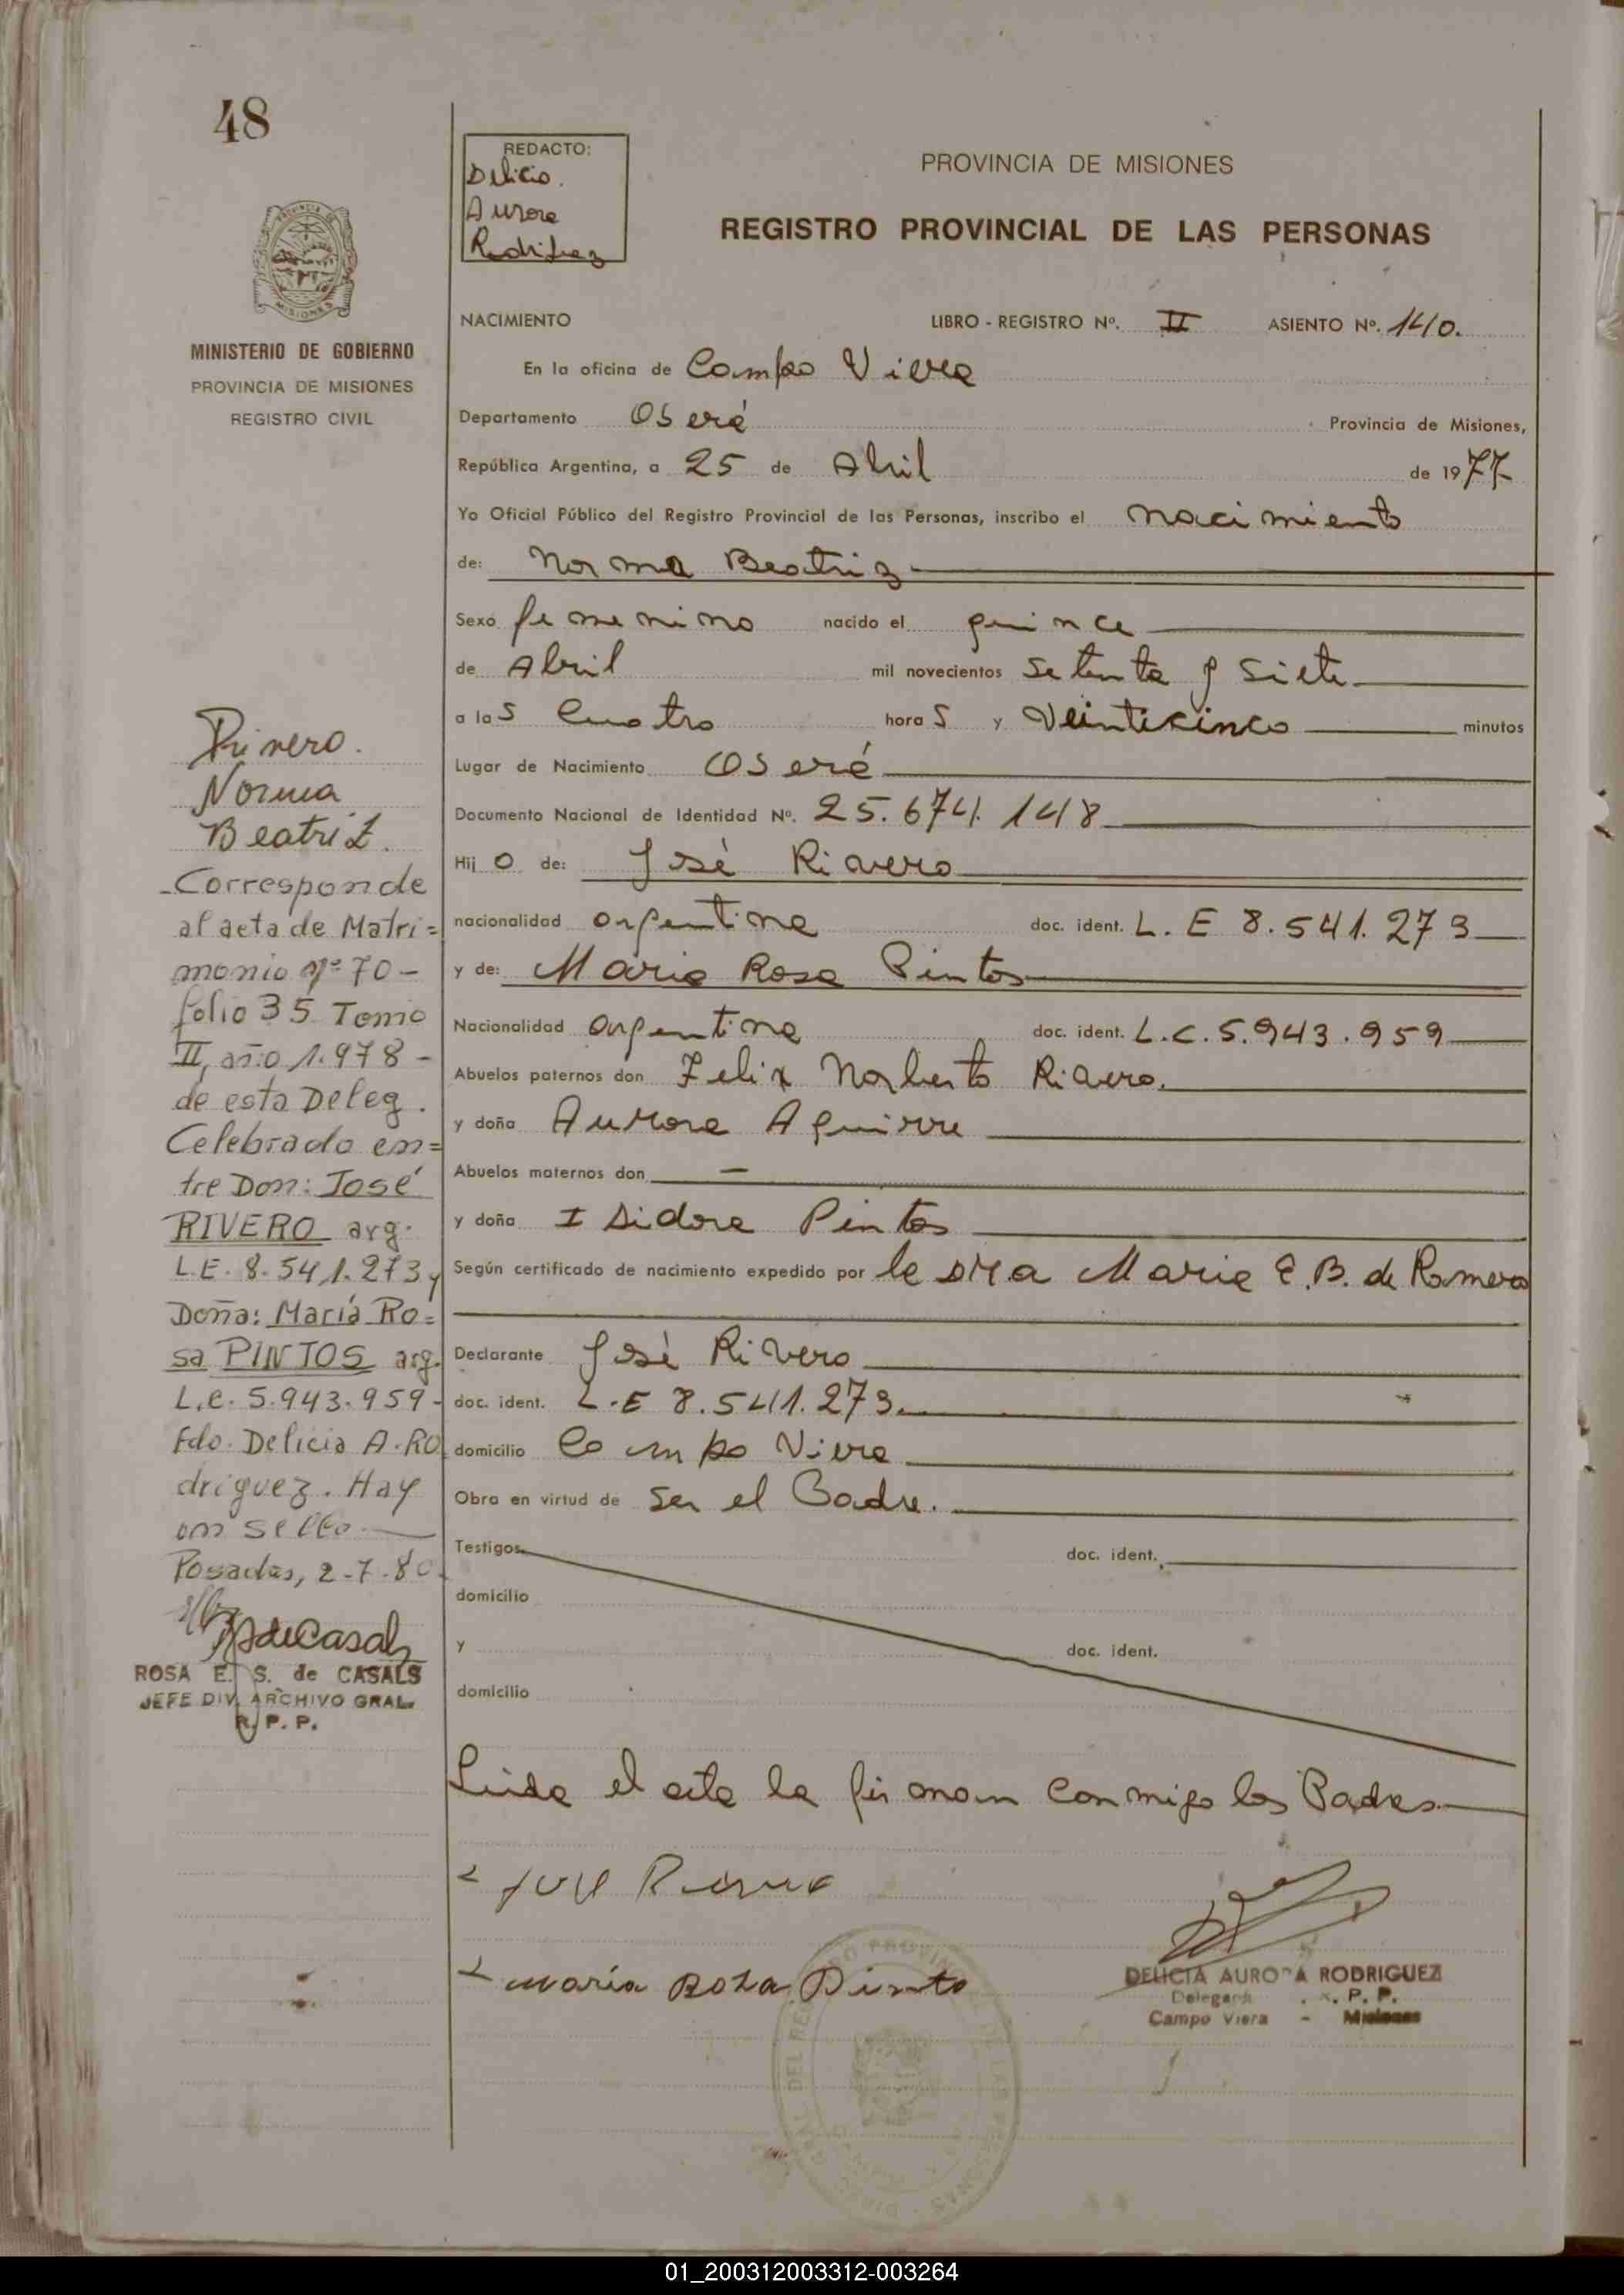 48
REDACTO:
Delicia
Aurora
Rodriguez
PROVINCIA DE MISIONES
REGISTRO PROVINCIAL DE LAS PERSONAS
MINISTERIO DE GOBIERNO
PROVINCIA DE MISIONES
REGISTRO CIVIL
NACIMIENTO LIBRO - REGISTRO Nº. II ASIENTO Nº. 140.
En la oficina de Campo Viera
Departamento Oberá Provincia de Misiones,
República Argentina, a 25 de Abril de 1977
Yo Oficial Público del Registro Provincial de las Personas, inscribo el nacimiento
de: Norma Beatriz
Sexo femenino nacido el quince
de Abril mil novecientos setenta y siete
a las cuatro horas y veinticinco minutos
Lugar de Nacimiento Oberá
Documento Nacional de Identidad Nº. 25.674.148
Hijo de: José Rivero
nacionalidad argentina doc. ident. L.E 8.541.273
y de: Maria Rosa Pintos
Nacionalidad argentina doc. ident. L.C. 5.943.959
Abuelos paternos don Felix Norberto Rivero.
y doña Aurora Aguirre
Abuelos maternos don —
y doña Isidora Pintos
Según certificado de nacimiento expedido por la Dra Maria E.B. de Romero
Declarante José Rivero
doc. ident. L.E 8.541.273.
domicilio Campo Viera
Obra en virtud de ser el Padre.
Testigos doc. ident.
domicilio
y doc. ident.
domicilio
Leida el acta la firman conmigo los Padres
José Rivero
María Rosa Pinto
DELICIA AURORA RODRIGUEZ
Delegada R. P. P.
Campo Viera - Misiones
Rivero.
Norma
Beatriz.
Corresponde
al acta de Matri=
monio Nº 70-
folio 35 Tomo
II, año 1.978-
de esta Deleg.
Celebrado en=
tre Don: José
RIVERO arg.
L.E. 8.541.273 y
Doña: María Ro=
sa PINTOS arg.
L.C. 5.943.959-
Fdo. Delicia A. Ro
driguez. Hay
un sello.
Posadas, 2-7-80.
ROSA E. S. de CASALS
JEFE DIV. ARCHIVO GRAL.
R. P. P.
01_200312003312-003264